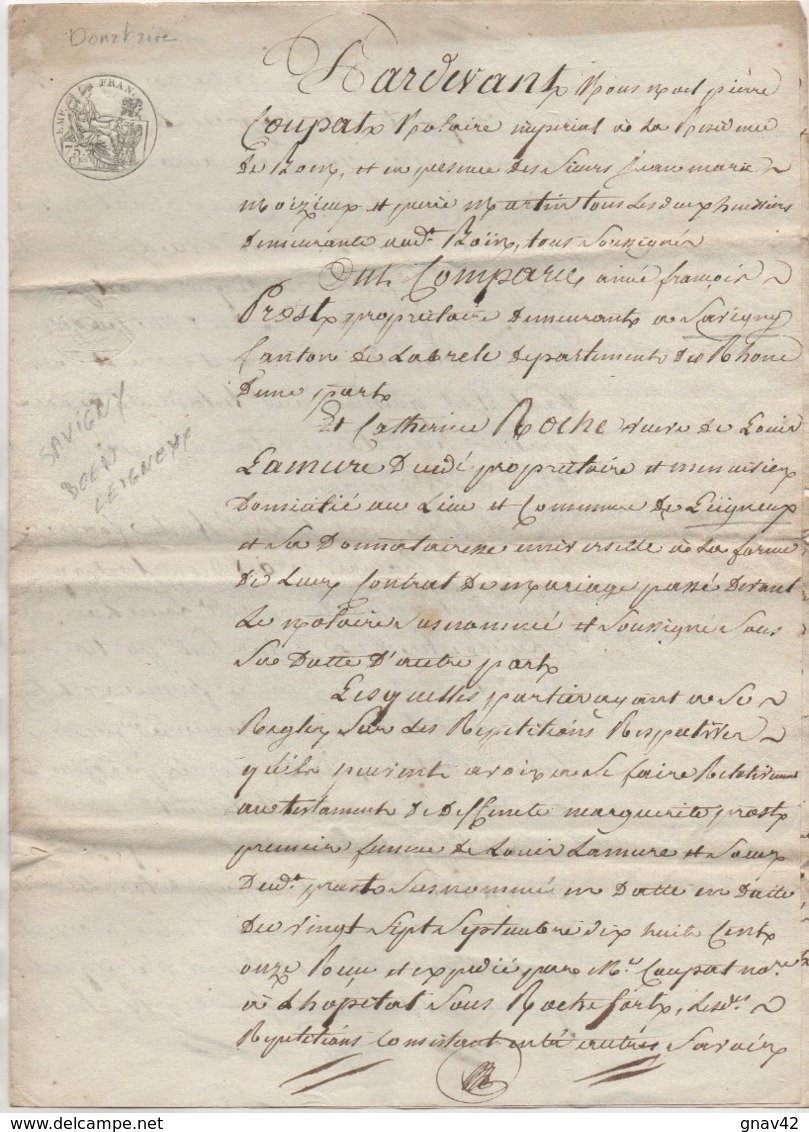 Donataire
EMP. FRAN.
75 C
Pardevant Nous noel pierre
Coupat Notaire imperial à La Residence
de Boën, et en presence des sieurs jean marie
moizieux et pierre martin tous Les deux huissiers
demeurants audt Boën, tous Soussignés
Ont Comparu, aimé françois
Prost proprietaire demeurant à Savigny
Canton de Labrele departement du Rhône
d'une part
Et Catherine Roche veuve de Louis
Lamure Decedé proprietaire et menuisier
Domicilié au Lieu et Commune de Leigneux
et Sa Donnatairesse universelle à La forme
de Leur Contrat de mariage passé devant
Le notaire Susnommé et Soussigné Sous
Sa Datte D'autre part
SAVIGNY
BOEN
LEIGNEUX
Lesquelles parties ayant à Se
Regler Sur Les Repetitions Respectives
qu'ils peuvent avoir à Se faire Relativement
au testament de deffunte marguerite prost
premier femme de Louis Lamure et Soeur
Dudt prost Susnommé en Datte en Datte
Du vingt Sept Septembre dix huit Cent
onze Reçu et expedié par Me Coupat nore
à L'hopital Sous Rochefort, Lesdes
Repetitions Consistant entre autres Savoir
gnav42